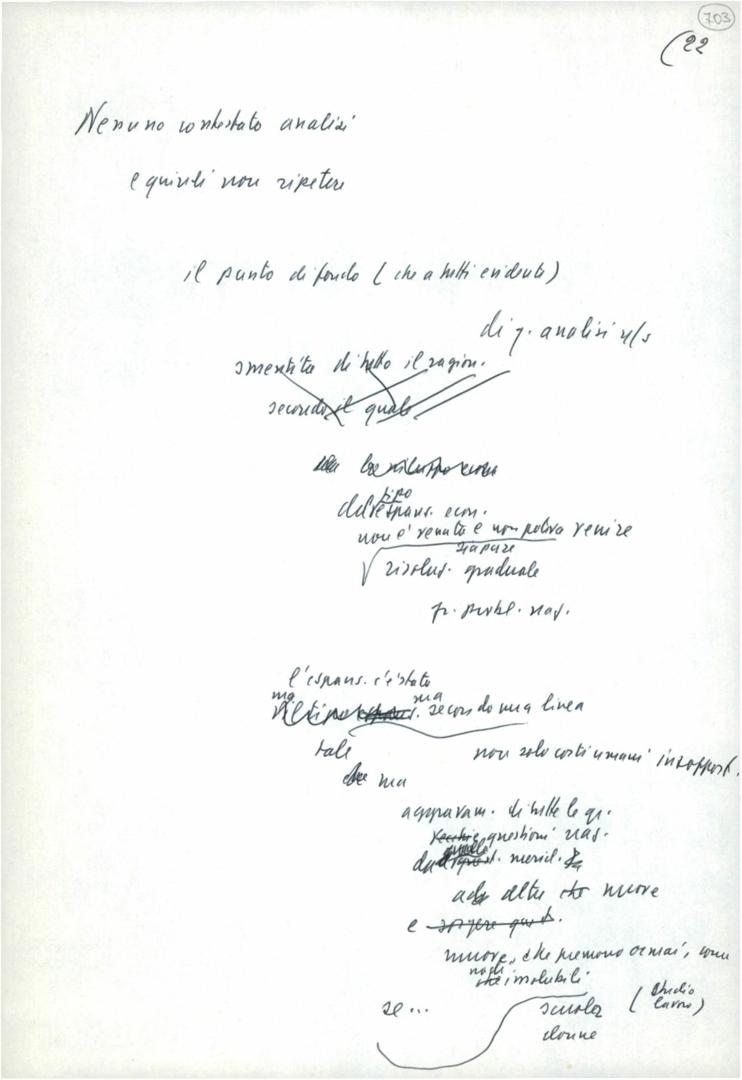 703
(22
Nessuno contestato analisi
e quindi non ripetere
il punto di fondo (che a tutti evidente)
di q. analisi n/s
smentita di tutto il ragion.
secondo il quale
tipo
espans. econ.
non è venuta e non poteva venire
neppure
risoluz. graduale
pr. probl. naz.
l'espans. c'è stata
ma
ma
secondo una linea
tale
non solo costi umani insopport.
che ma
aggravam. di tutte le qu.
vecchie questioni naz.
quella
merid.
ad altre che nuove
e sorgere quest.
nuove, che premono ormai, come
nodi
insolubili
se...
scuola (studio
lavoro)
donne